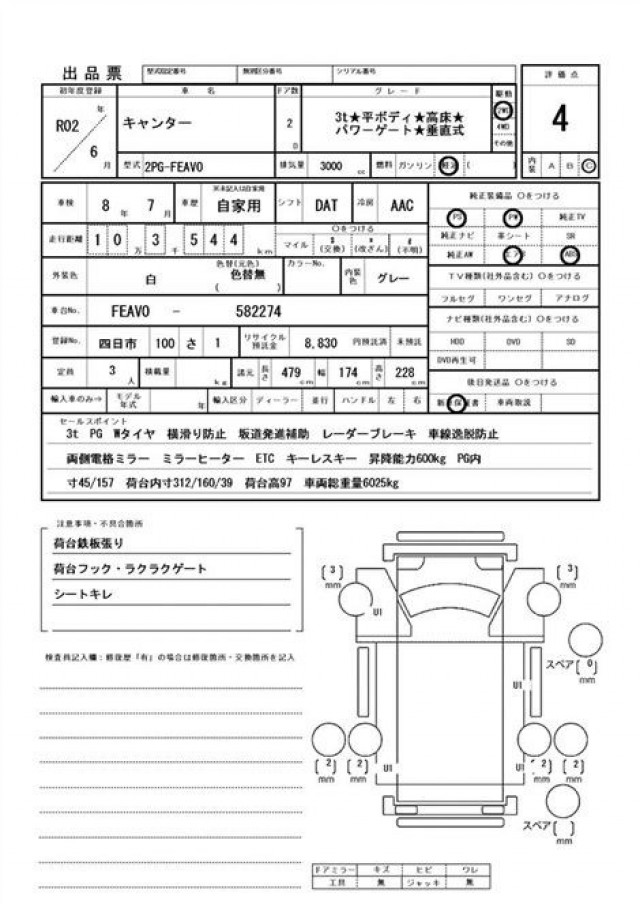 出品票
型式指定番号 類別区分番号 シリアル番号
評価点
初年度登録 車名 ドア数 グレード 駆動
R02年 6月
キャンター
2D
3t★平ボディ★高床★
パワーゲート★垂直式
2WD
4WD
その他
4
型式 2PG-FEAV0 排気量 3000cc 燃料 ガソリン 軽油 ( )
内装 A B C
車検 8年 7月 車歴 ※未記入は自家用 自家用 シフト DAT 冷房 AAC
純正装備品 ○をつける
PS PW 純正TV
走行距離 10万3千544km
○をつける
マイル $(交換) *(改ざん) #(不明)
純正ナビ 革シート SR
純正AW エアB ABS
外装色 白 色替(元色) 色替無 ( ) カラーNo. 内装色 グレー
TV種類(社外品含む) ○をつける
フルセグ ワンセグ アナログ
車台No. FEAV0 - 582274
ナビ種類(社外品含む) ○をつける
登録No. 四日市 100 さ 1 リサイクル預託金 8,830 円預託済 未預託
HDD DVD SD
DVD再生可
定員 3人 積載量 kg 諸元 長さ 479cm 幅 174cm 高さ 228cm
後日発送品 ○をつける
輸入車のみ⇒ モデル年式 年 輸入区分 ディーラー 並行 ハンドル 左 右
新車保証書 車両取説
セールスポイント
3t PG Wタイヤ 横滑り防止 坂道発進補助 レーダーブレーキ 車線逸脱防止
両側電格ミラー ミラーヒーター ETC キーレスキー 昇降能力600kg PG内
寸45/157 荷台内寸312/160/39 荷台高97 車両総重量6025kg
注意事項・不具合箇所
荷台鉄板張り
荷台フック・ラクラクゲート
シートキレ
検査員記入欄：修復歴「有」の場合は修復箇所・交換箇所を記入
[3]mm [3]mm
U1
スペア[0]mm
U1
[2]mm [2]mm U1 U1 [2]mm [2]mm
スペア[ ]mm
ドアミラー キズ ヒビ ワレ
工具 無 ジャッキ 無